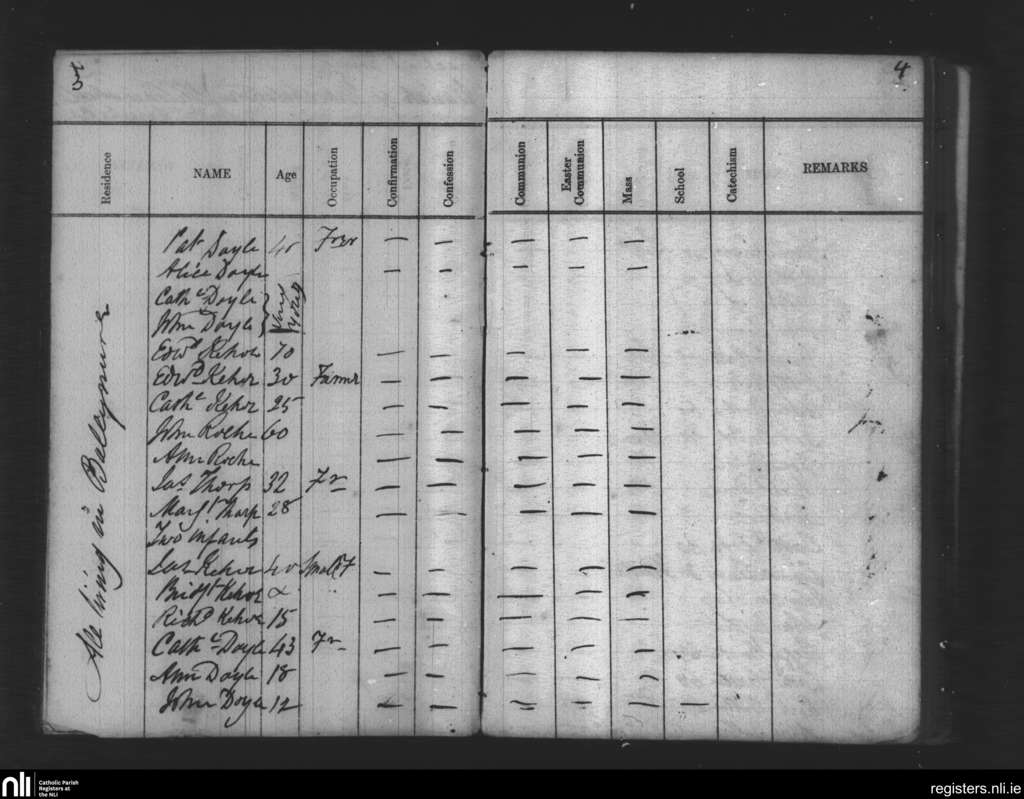 3
4
Residence NAME Age Occupation Confirmation Confession Communion Easter Communion Mass School Catechism REMARKS
All living in Ballymurn
Pat Doyle 40 Frmr — — — — —
Alice Doyle — — — — —
Cathe Doyle } Very
John Doyle } young
Edwd Kehoe 70 — — — — —
Edwd Kehoe 30 Farmr — — — — —
Cathe Kehoe 25 — — — — —
John Roche 60 — — — — —
Ann Roche — — — — —
Jas Thorp 32 Fr — — — — —
Margt Thorp 28 — — — — —
Two infants
Jas Kehoe 40 — — — — —
Bridgt Kehoe — — — — —
Richd Kehoe 15 — — — — —
Cathe Doyle 43 Fr — — — — —
Ann Doyle 18 — — — — —
John Doyle 12 — — — — — —
nli Catholic Parish
Registers at
the NLI
registers.nli.ie